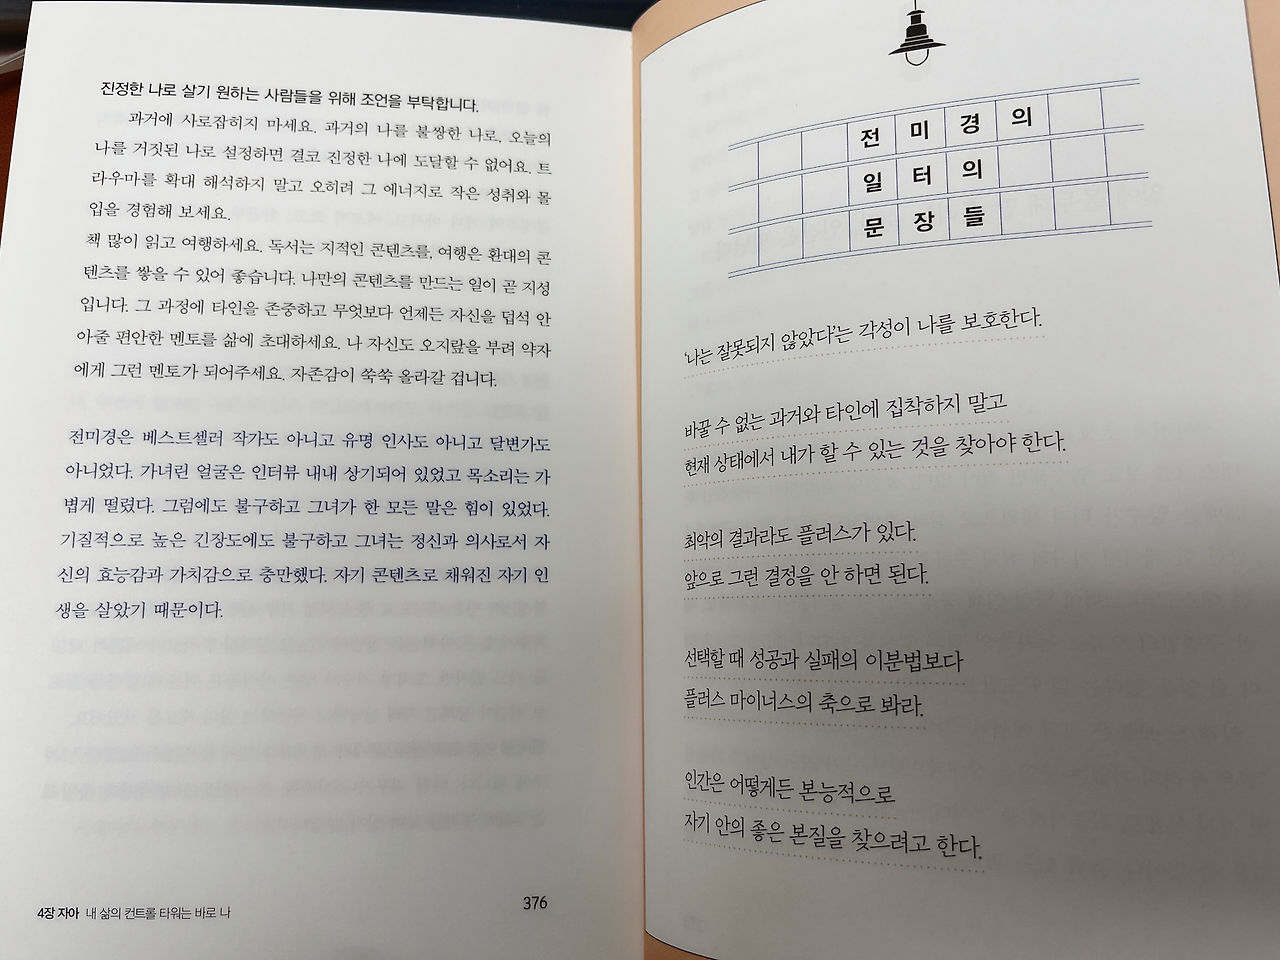 진정한 나로 살기 원하는 사람들을 위해 조언을 부탁합니다.
과거에 사로잡히지 마세요. 과거의 나를 불쌍한 나로, 오늘의
나를 거짓된 나로 설정하면 결코 진정한 나에 도달할 수 없어요. 트
라우마를 확대 해석하지 말고 오히려 그 에너지로 작은 성취와 몰
입을 경험해 보세요.
책 많이 읽고 여행하세요. 독서는 지적인 콘텐츠를, 여행은 환대의 콘
텐츠를 쌓을 수 있어 좋습니다. 나만의 콘텐츠를 만드는 일이 곧 지성
입니다. 그 과정에 타인을 존중하고 무엇보다 언제든 자신을 덥석 안
아줄 편안한 멘토를 삶에 초대하세요. 나 자신도 오지랖을 부려 약자
에게 그런 멘토가 되어주세요. 자존감이 쑥쑥 올라갈 겁니다.
전미경은 베스트셀러 작가도 아니고 유명 인사도 아니고 달변가도
아니었다. 가녀린 얼굴은 인터뷰 내내 상기되어 있었고 목소리는 가
볍게 떨렸다. 그럼에도 불구하고 그녀가 한 모든 말은 힘이 있었다.
기질적으로 높은 긴장도에도 불구하고 그녀는 정신과 의사로서 자
신의 효능감과 가치감으로 충만했다. 자기 콘텐츠로 채워진 자기 인
생을 살았기 때문이다.
4장 자아 내 삶의 컨트롤 타워는 바로 나
376
전미경의
일터의
문장들
'나는 잘못되지 않았다'는 각성이 나를 보호한다.
바꿀 수 없는 과거와 타인에 집착하지 말고
현재 상태에서 내가 할 수 있는 것을 찾아야 한다.
최악의 결과라도 플러스가 있다.
앞으로 그런 결정을 안 하면 된다.
선택할 때 성공과 실패의 이분법보다
플러스 마이너스의 축으로 봐라.
인간은 어떻게든 본능적으로
자기 안의 좋은 본질을 찾으려고 한다.